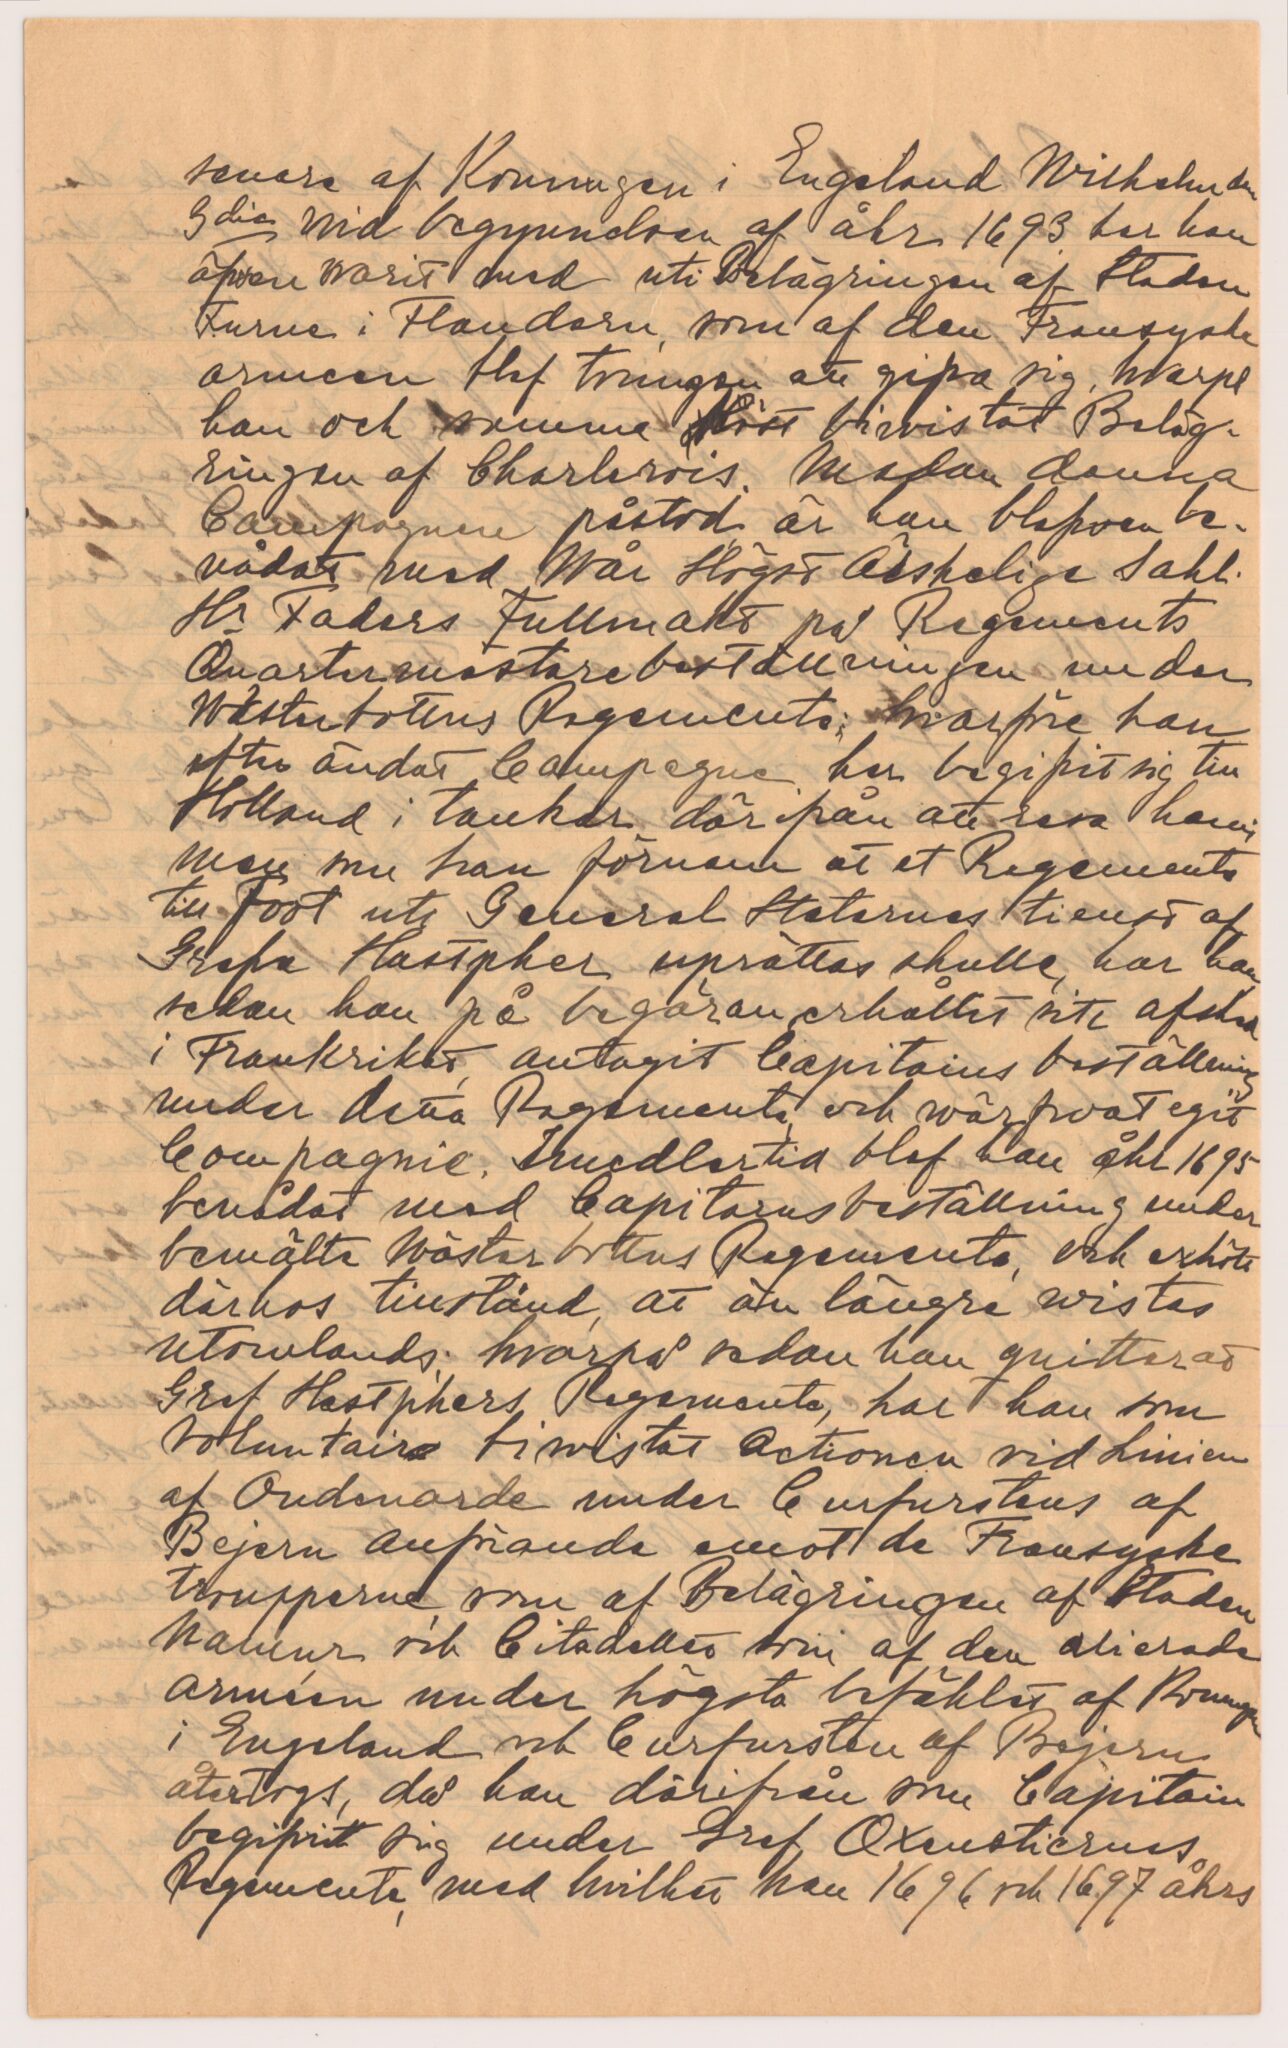 senare af Konungen i Engeland Wilhelm den
3die. Wid begynnelsen af åhr 1693 har han
äfwen warit med uti Belägringen af Staden
Furne i Flandern, som af den Fransyske
armeen blef twungen att gifva sig, hvarpå
han och samma Höst biwistat Beläg-
ringen af Charlerois. Medan denna
Campagnen påstod, är han blefwen be-
nådat med Wår Högst Älskelige Sahl.
Hr. Faders Fullmakt på Regements
Quartermästarebeställningen under
Wästerbottens Regemente; hwarföre han
efter ändat Campagne har begifvit sig till
Holland i tankar därifrån att resa hem;
men som han förnam at et Regemente
till Foot uti General Staternas tienst af
Grefve Hastpher uprättas skulle, har han
sedan han på begäran erhållit sitt afsked
i Frankriket, antagit Capitains beställning
under detta Regemente och wärfwat egit
Compagnie. Imedlertid blef han åhr 1695
benådat med Capitains beställning under
bemälte Wästerbottens Regemente, och erhölt
därhos tillstånd, at än längre wistas
utomlands; hvarpå sedan han quitterat
Gref Hastphers Regemente, har han som
Voluntaire biwistat Actionen vid Linien
af Oudenarde under Curfurstens af
Bejern anförande emot de Fransyske
troupperne, som af Belägringen af Staden
Namur och Citadellet som af den alierade
arméen under högsta befählet af Konungen
i Engeland och Curfursten af Bejern
återtogs, då han därifrån som Capitain
begifvit sig under Gref Oxenstiernas
Regemente, med hvilket han 1696 och 1697 åhrs